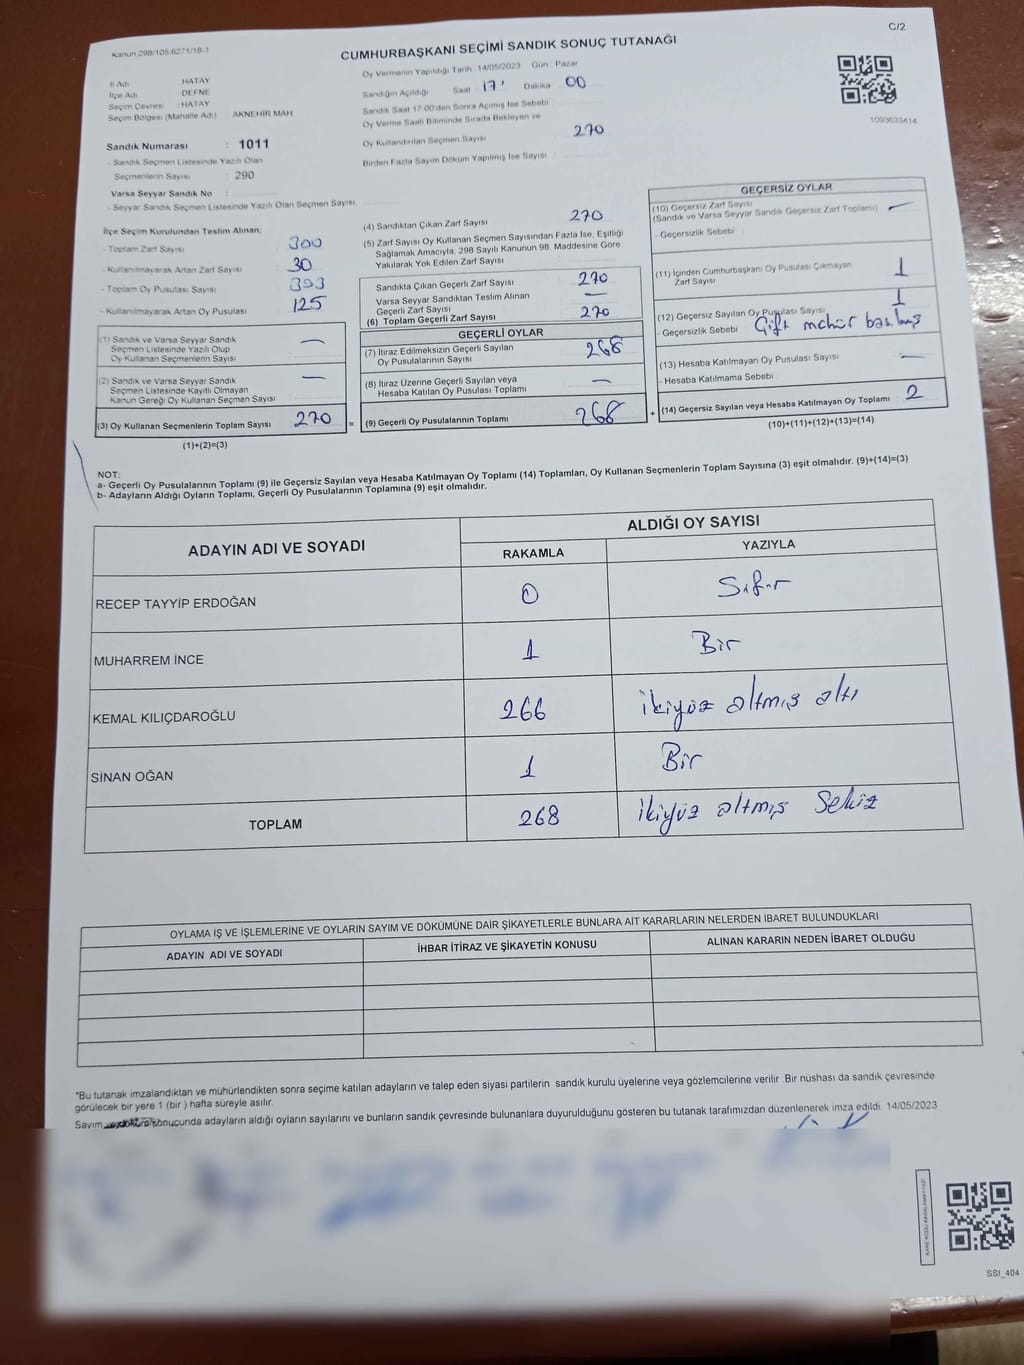 C/2
Kanun:298/105,6271/18-1
CUMHURBAŞKANI SEÇİMİ SANDIK SONUÇ TUTANAĞI
İl Adı : HATAY
İlçe Adı : DEFNE
Seçim Çevresi : HATAY
Seçim Bölgesi (Mahalle Adı) AKNEHİR MAH
Sandık Numarası : 1011
- Sandık Seçmen Listesinde Yazılı Olan
Seçmenlerin Sayısı : 290
Varsa Seyyar Sandık No :
- Seyyar Sandık Seçmen Listesinde Yazılı Olan Seçmen Sayısı
Oy Vermenin Yapıldığı Tarih 14/05/2023 Gün Pazar
Sandığın Açıldığı Saat 17 Dakika 00
Sandık Saat 17.00'den Sonra Açılmış İse Sebebi
Oy Verme Saati Bitiminde Sırada Bekleyen ve
Oy Kullandırılan Seçmen Sayısı 270
Birden Fazla Sayım Döküm Yapılmış İse Sayısı
1093633414
İlçe Seçim Kurulundan Teslim Alınan;
- Toplam Zarf Sayısı 300
- Kullanılmayarak Artan Zarf Sayısı 30
- Toplam Oy Pusulası Sayısı 393
- Kullanılmayarak Artan Oy Pusulası 125
(1) Sandık ve Varsa Seyyar Sandık
Seçmen Listesinde Yazılı Olup
Oy Kullanan Seçmenlerin Sayısı —
(2) Sandık ve Varsa Seyyar Sandık
Seçmen Listesinde Kayıtlı Olmayan
Kanun Gereği Oy Kullanan Seçmen Sayısı —
(3) Oy Kullanan Seçmenlerin Toplam Sayısı 270
(1)+(2)=(3)
(4) Sandıktan Çıkan Zarf Sayısı 270
(5) Zarf Sayısı Oy Kullanan Seçmen Sayısından Fazla İse, Eşitliği
Sağlamak Amacıyla, 298 Sayılı Kanunun 98. Maddesine Göre
Yakılarak Yok Edilen Zarf Sayısı
Sandıkta Çıkan Geçerli Zarf Sayısı 270
Varsa Seyyar Sandıktan Teslim Alınan
Geçerli Zarf Sayısı —
(6) Toplam Geçerli Zarf Sayısı 270
GEÇERLİ OYLAR
(7) İtiraz Edilmeksizin Geçerli Sayılan
Oy Pusulalarının Sayısı 268
(8) İtiraz Üzerine Geçerli Sayılan veya
Hesaba Katılan Oy Pusulası Toplamı —
= (9) Geçerli Oy Pusulalarının Toplamı 268
GEÇERSİZ OYLAR
(10) Geçersiz Zarf Sayısı —
(Sandık ve Varsa Seyyar Sandık Geçersiz Zarf Toplamı)
- Geçersizlik Sebebi :
(11) İçinden Cumhurbaşkanı Oy Pusulası Çıkmayan
Zarf Sayısı 1
(12) Geçersiz Sayılan Oy Pusulası Sayısı 1
- Geçersizlik Sebebi Çift mühür basılmış
(13) Hesaba Katılmayan Oy Pusulası Sayısı —
- Hesaba Katılmama Sebebi
+ (14) Geçersiz Sayılan veya Hesaba Katılmayan Oy Toplamı 2
(10)+(11)+(12)+(13)=(14)
NOT:
a- Geçerli Oy Pusulalarının Toplamı (9) ile Geçersiz Sayılan veya Hesaba Katılmayan Oy Toplamı (14) Toplamları, Oy Kullanan Seçmenlerin Toplam Sayısına (3) eşit olmalıdır. (9)+(14)=(3)
b- Adayların Aldığı Oyların Toplamı, Geçerli Oy Pusulalarının Toplamına (9) eşit olmalıdır.
ADAYIN ADI VE SOYADI
ALDIĞI OY SAYISI
RAKAMLA YAZIYLA
RECEP TAYYİP ERDOĞAN 0 Sıfır
MUHARREM İNCE 1 Bir
KEMAL KILIÇDAROĞLU 266 ikiyüz altmış altı
SİNAN OĞAN 1 Bir
TOPLAM 268 ikiyüz altmış Sekiz
OYLAMA İŞ VE İŞLEMLERİNE VE OYLARIN SAYIM VE DÖKÜMÜNE DAİR ŞİKAYETLERLE BUNLARA AİT KARARLARIN NELERDEN İBARET BULUNDUKLARI
ADAYIN ADI VE SOYADI İHBAR İTİRAZ VE ŞİKAYETİN KONUSU ALINAN KARARIN NEDEN İBARET OLDUĞU
*Bu tutanak imzalandıktan ve mühürlendikten sonra seçime katılan adayların ve talep eden siyasi partilerin sandık kurulu üyelerine veya gözlemcilerine verilir Bir nüshası da sandık çevresinde
görülecek bir yere 1 (bir ) hafta süreyle asılır.
Sayım sonucunda adayların aldığı oyların sayılarını ve bunların sandık çevresinde bulunanlara duyurulduğunu gösteren bu tutanak tarafımızdan düzenlenerek imza edildi. 14/05/2023
SSI_404